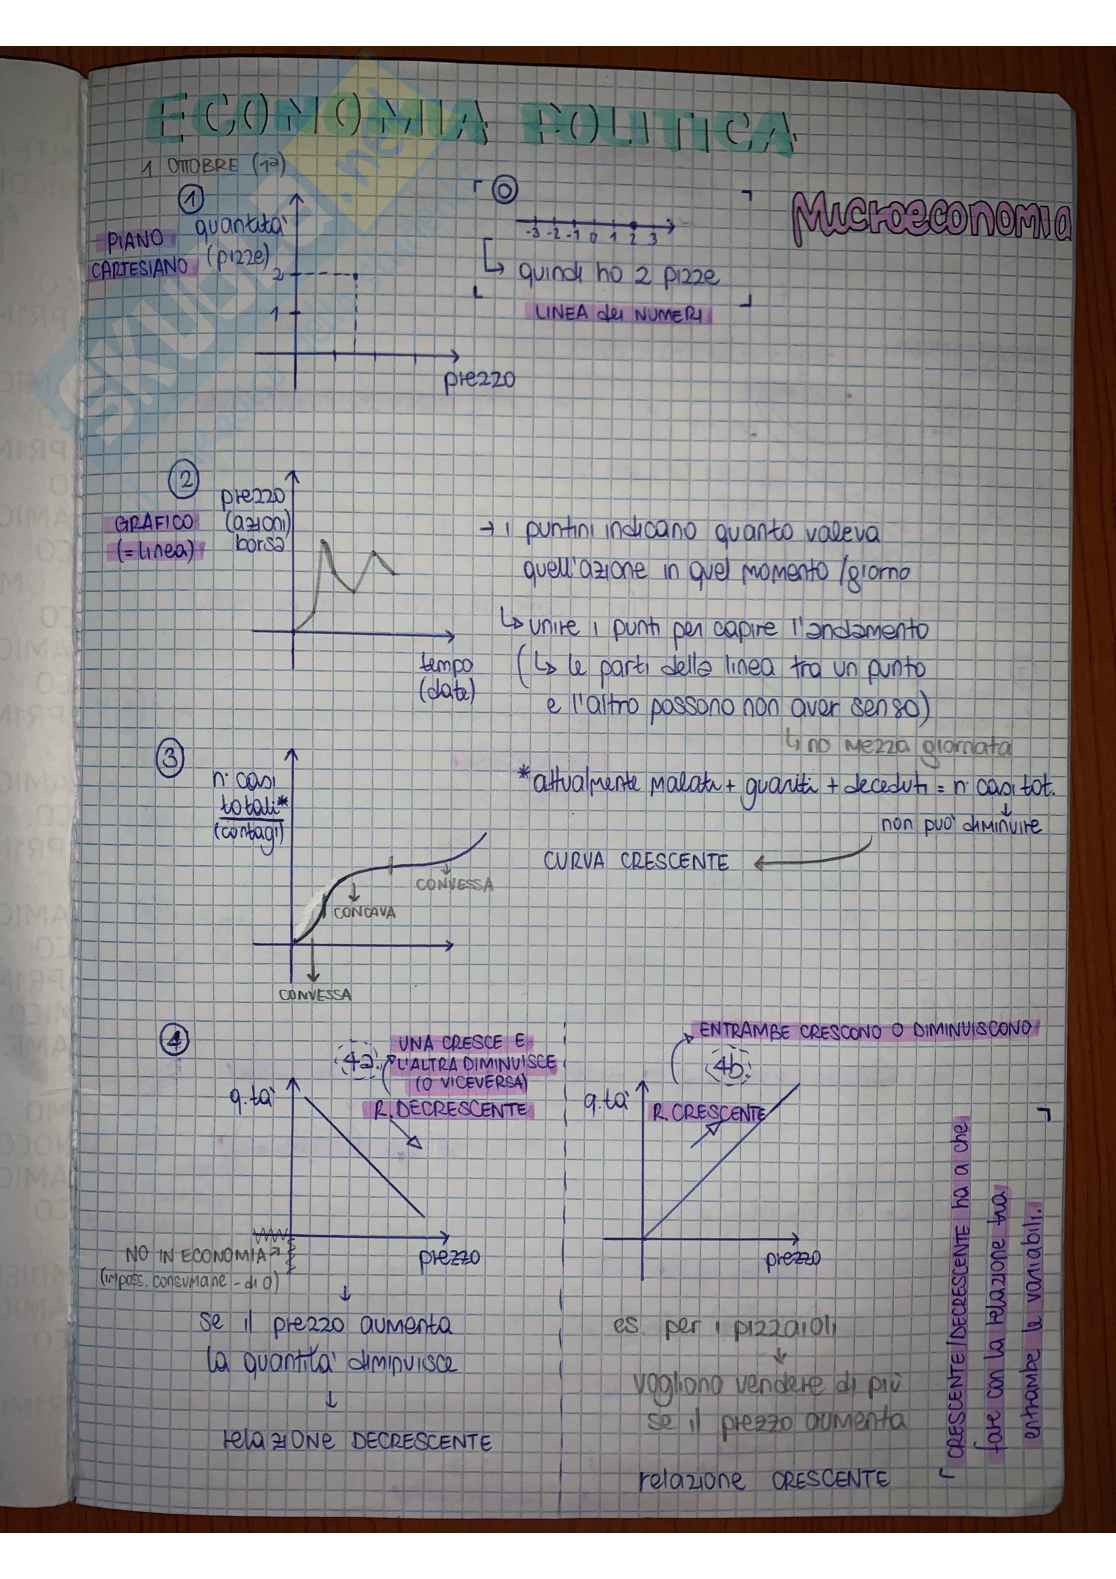 ECONOMIA POLITICA
1 OTTOBRE (1ª)
Microeconomia
0
-3 -2 -1 0 1 2 3
↳ quindi ho 2 pizze
LINEA dei NUMERI
1
PIANO
CARTESIANO
quantità
(pizze)
2
1
prezzo
SKUOLA.net
2
GRAFICO
(=linea)
prezzo
(azioni)
borsa
tempo
(date)
→ i puntini indicano quanto valeva
quell'azione in quel momento/giorno
↳ unire i punti per capire l'andamento
(↳ le parti della linea tra un punto
e l'altro possono non aver senso)
↳ no mezza giornata
3
n. casi
totali*
(contagi)
*attualmente malati + guariti + deceduti = n. casi tot.
↓
non può diminuire
CURVA CRESCENTE ←
CONVESSA
CONCAVA
CONVESSA
4
4a.
UNA CRESCE E
L'ALTRA DIMINUISCE
(O VICEVERSA)
R. DECRESCENTE
q.tà
prezzo
NO IN ECONOMIA
(imposs. consumare - di 0)
↓
se il prezzo aumenta
la quantità diminuisce
↓
relazione DECRESCENTE
ENTRAMBE CRESCONO O DIMINUISCONO
4b.
q.tà
R. CRESCENTE
prezzo
es. per i pizzaioli
↓
vogliono vendere di più
se il prezzo aumenta
relazione CRESCENTE
CRESCENTE/DECRESCENTE ha a che
fare con la relazione tra
entrambe le variabili.